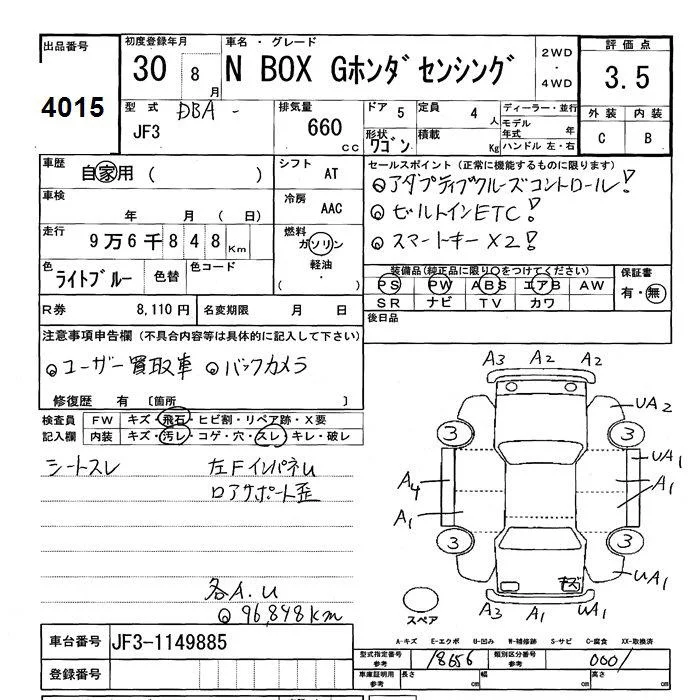 出品番号
4015
初度登録年月
30 8 月
車名・グレード
N BOX Gホンダセンシング
2WD
・
4WD
評価点
3.5
外装 内装
C B
型式
DBA -
JF3
排気量
660
cc
ドア 5
形状
ワゴン
定員 4 人
積載 Kg
ディーラー・並行
モデル
年式 年
ハンドル 左・右
車歴
自家用 ( )
シフト AT
車検
年 月 ( 日)
冷房 AAC
走行
9万6千848 Km
燃料
ガソリン
・
軽油
( ・ )
色
ライトブルー
色替
色コード
R券 8,110円
名変期限 月 日
セールスポイント (正常に機能するものに限ります)
◎アダプティブクルーズコントロール!
◎ビルトインETC!
◎スマートキー×2!
装備品(純正品に限り○をつけてください)
PS PW ABS エアB AW
SR ナビ TV カワ
保証書
有・無
後日品
注意事項申告欄 (不具合内容等は具体的に記入して下さい)
◎ユーザー買取車 ◎バックカメラ
修復歴 有 〔箇所 〕
検査員
記入欄
FW キズ・飛石・ヒビ割・リペア跡・X要
内装 キズ・汚レ・コゲ・穴・スレ・キレ・破レ
シートスレ
左FインパネU
ロアサポート歪
各A.U
◎96,848km
A3 A2 A2
UA2
3 3
A4
UA1
A1
A1
3 3
キズ
UA1
A3 A1 UA1
スペア
A-キズ E-エクボ U-凹み W-補修跡 S-サビ C-腐食 XX-取換済
車台番号 JF3-1149885
登録番号
型式指定番号
参考
18656
類別区分番号
参考
0001
車庫証明用
参考
長さ cm
幅 cm
高さ cm